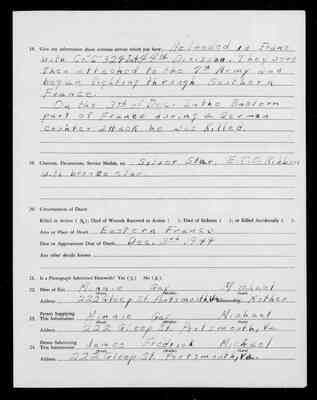 18. Give any information about overseas service which you have: He landed in France
with Co. C 324 Inf 44th Division. They were
then attached to the 7th Army and
began fighting through Southern
France.
On the 3rd of Dec. in the Eastern
part of France during a German
counter attack he was killed.
19. Citations, Decorations, Service Medals, etc. Silver Star, E.T.O. Ribbon
with bronze star.
20. Circumstances of Death
Killed in Action (X); Died of Wounds Received in Action ( ); Died of Sickness ( ); or Killed Accidentally ( ).
Area or Place of Death Eastern France
Date or Approximate Date of Death Dec. 3rd 1944
Any other details known
21. Is a Photograph Submitted Herewith? Yes ( ) No ( ).
22. Next of Kin Minnie Gay Michael
(First) (Middle) (Last)
Address 222 Gloop St. Portsmouth, Va. Relationship Mother
Person Supplying
23. This Information Minnie Gay Michael
(First) (Middle) (Last)
Address 222 Gloop St. Portsmouth, Va.
Person Submitting
24. This Information James Fredrick Michael
(First) (Middle) (Last)
Address 222 Gloop St. Portsmouth, Va.